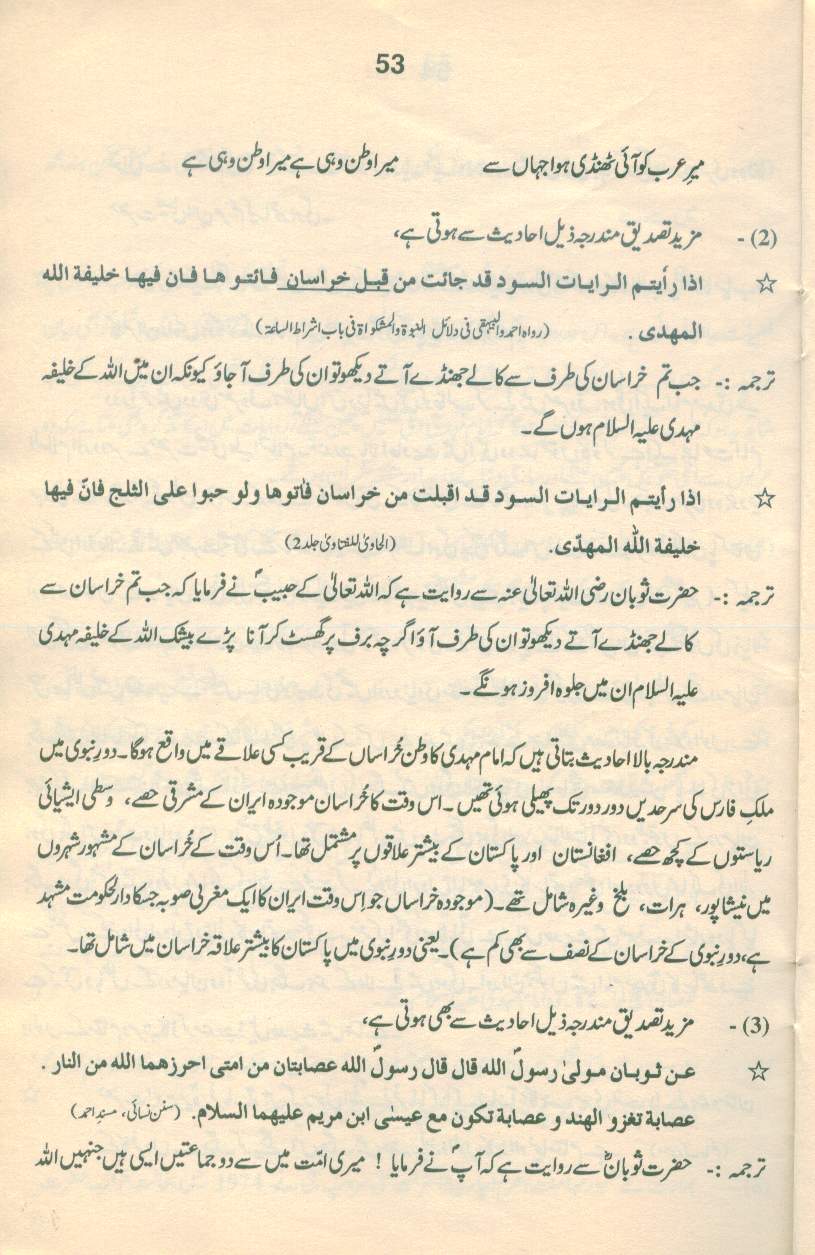 53
میرِ عرب کو آئی ٹھنڈی ہوا جہاں سے میرا وطن وہی ہے میرا وطن وہی ہے
(2) - مزید تصدیق مندرجہ ذیل احادیث سے ہوتی ہے،
☆ اذا رأیتم الرایات السود قد جائت من قبل خراسان فائتو ها فان فیها خلیفة الله
المهدی . (رواه احمد والبیہقی فی دلائل النبوة والمشکواة فی باب اشراط الساعة)
ترجمہ :- جب تم خراسان کی طرف سے کالے جھنڈے آتے دیکھو تو ان کی طرف آجاؤ کیونکہ ان میں اللہ کے خلیفہ
مہدی علیہ السلام ہوں گے۔
☆ اذا رأیتم الرایات السود قد اقبلت من خراسان فأتوها ولو حبوا علی الثلج فانّ فیها
خلیفة الله المهدّی. (الحاوی للفتاویٰ جلد 2)
ترجمہ :- حضرت ثوبان رضی اللہ تعالیٰ عنہ سے روایت ہے کہ اللہ تعالیٰ کے حبیبؐ نے فرمایا کہ جب تم خراسان سے
کالے جھنڈے آتے دیکھو تو ان کی طرف آؤ اگرچہ برف پر گھسٹ کر آنا پڑے بیشک اللہ کے خلیفہ مہدی
علیہ السلام ان میں جلوہ افروز ہونگے۔
مندرجہ بالا احادیث بتاتی ہیں کہ امام مہدی کا وطن خُراساں کے قریب کسی علاقے میں واقع ہوگا۔ دورِ نبوی میں
ملکِ فارس کی سرحدیں دور دور تک پھیلی ہوئی تھیں۔ اس وقت کا خُراسان موجودہ ایران کے مشرقی حصے، وسطی ایشیائی
ریاستوں کے کچھ حصے، افغانستان اور پاکستان کے بیشتر علاقوں پر مشتمل تھا۔ اُس وقت کے خُراسان کے مشہور شہروں
میں نیشاپور، ہرات، بلخ وغیرہ شامل تھے۔ (موجودہ خراساں جو اِس وقت ایران کا ایک مغربی صوبہ جسکا دارلحکومت مشہد
ہے، دورِ نبوی کے خراسان کے نصف سے بھی کم ہے)۔ یعنی دورِ نبوی میں پاکستان کا بیشتر علاقہ خراسان میں شامل تھا۔
(3) - مزید تصدیق مندرجہ ذیل احادیث سے بھی ہوتی ہے،
☆ عن ثوبان مولیٰ رسولؐ الله قال قال رسولؐ الله عصابتان من امتی احرزهما الله من النار .
عصابة تغزو الهند و عصابة تکون مع عیسٰی ابن مریم علیهما السلام. (سنن نسائی، مسند احمد)
ترجمہ :- حضرت ثوبانؓ سے روایت ہے کہ آپؐ نے فرمایا ! میری امّت میں سے دو جماعتیں ایسی ہیں جنہیں اللہ